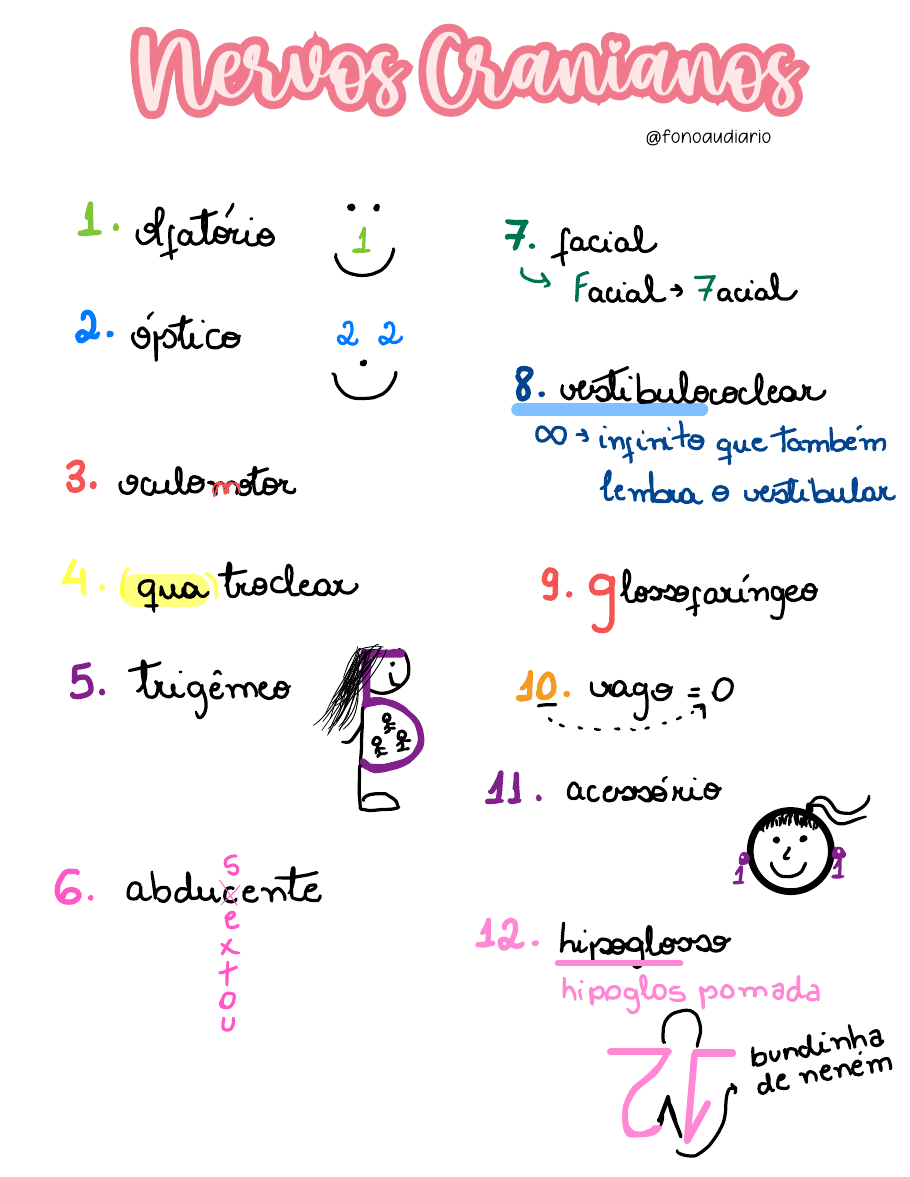 Nervos Cranianos
@fonoaudiario
1. olfatório
1
2. óptico
2 2
3. oculomotor
4. (qua) troclear
5. trigêmeo
6. abducente
s
e
x
t
o
u
7. facial
Facial → 7acial
8. vestibulococlear
∞ → infinito que também
lembra o vestibular
9. glossofaríngeo
10. vago = 0
11. acessório
1 1
12. hipoglosso
hipoglos pomada
bundinha
de neném